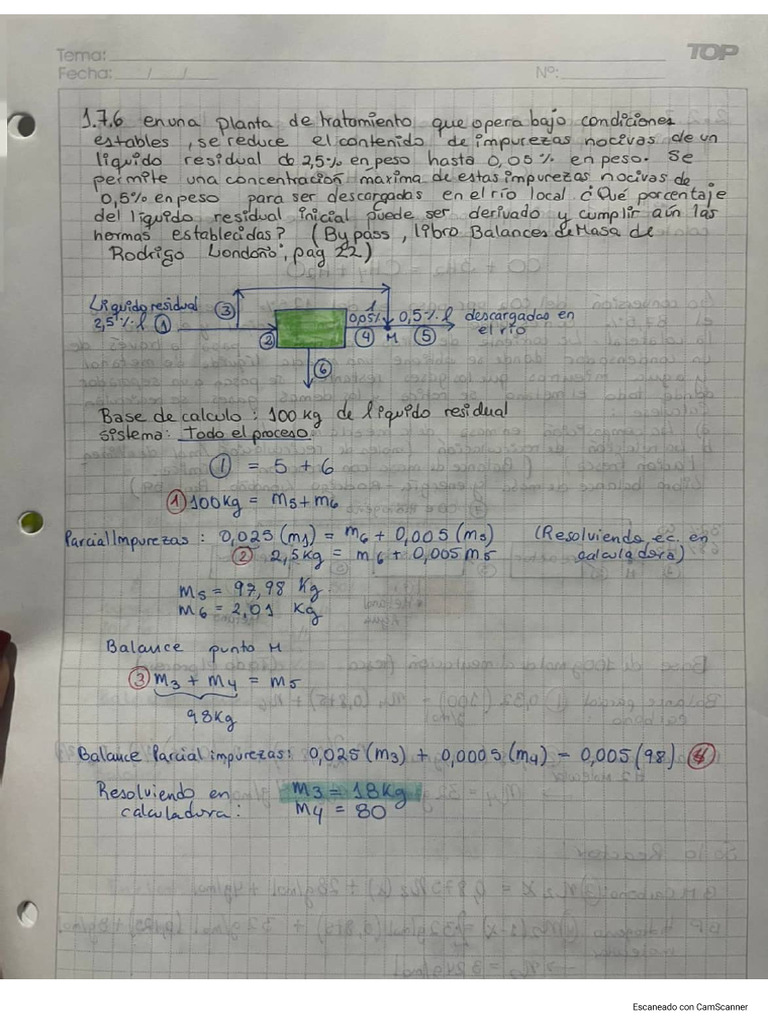 Tema:
TOP
Fecha: / / Nº:
1.7.6 en una planta de tratamiento que opera bajo condiciones
estables, se reduce el contenido de impurezas nocivas de un
líquido residual de 2,5% en peso hasta 0,05% en peso. Se
permite una concentración máxima de estas impurezas nocivas de
0,5% en peso para ser descargadas en el río local ¿Qué porcentaje
del líquido residual inicial puede ser derivado y cumplir aún las
normas establecidas? (By pass, libro Balances de Masa de
Rodrigo Londoño, pag 22)
Líquido residual
2,5% l ① ③ ② 0,05% l ④ M 0,5% l ⑤ descargadas en
el río
⑥
Base de calculo : 100 kg de líquido residual
sistema: Todo el proceso.
① = 5 + 6
① 100Kg = m5 + m6
Parcial Impurezas : 0,025 (m1) = m6 + 0,005 (m5) (Resolviendo ec. en
② 2,5kg = m6 + 0,005 m5 calculadora)
m5 = 97,98 Kg.
m6 = 2,01 Kg
Balance punto M
③ m3 + m4 = m5
98Kg
Balance Parcial impurezas: 0,025 (m3) + 0,0005 (m4) = 0,005 (98) ④
Resolviendo en m3 = 18Kg
calculadora: m4 = 80
Escaneado con CamScanner